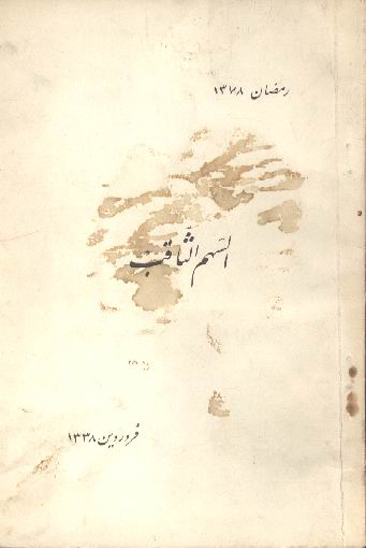 رمضان ۱۳۷۸
السّهم الثّاقب
فروردین ۱۳۳۸